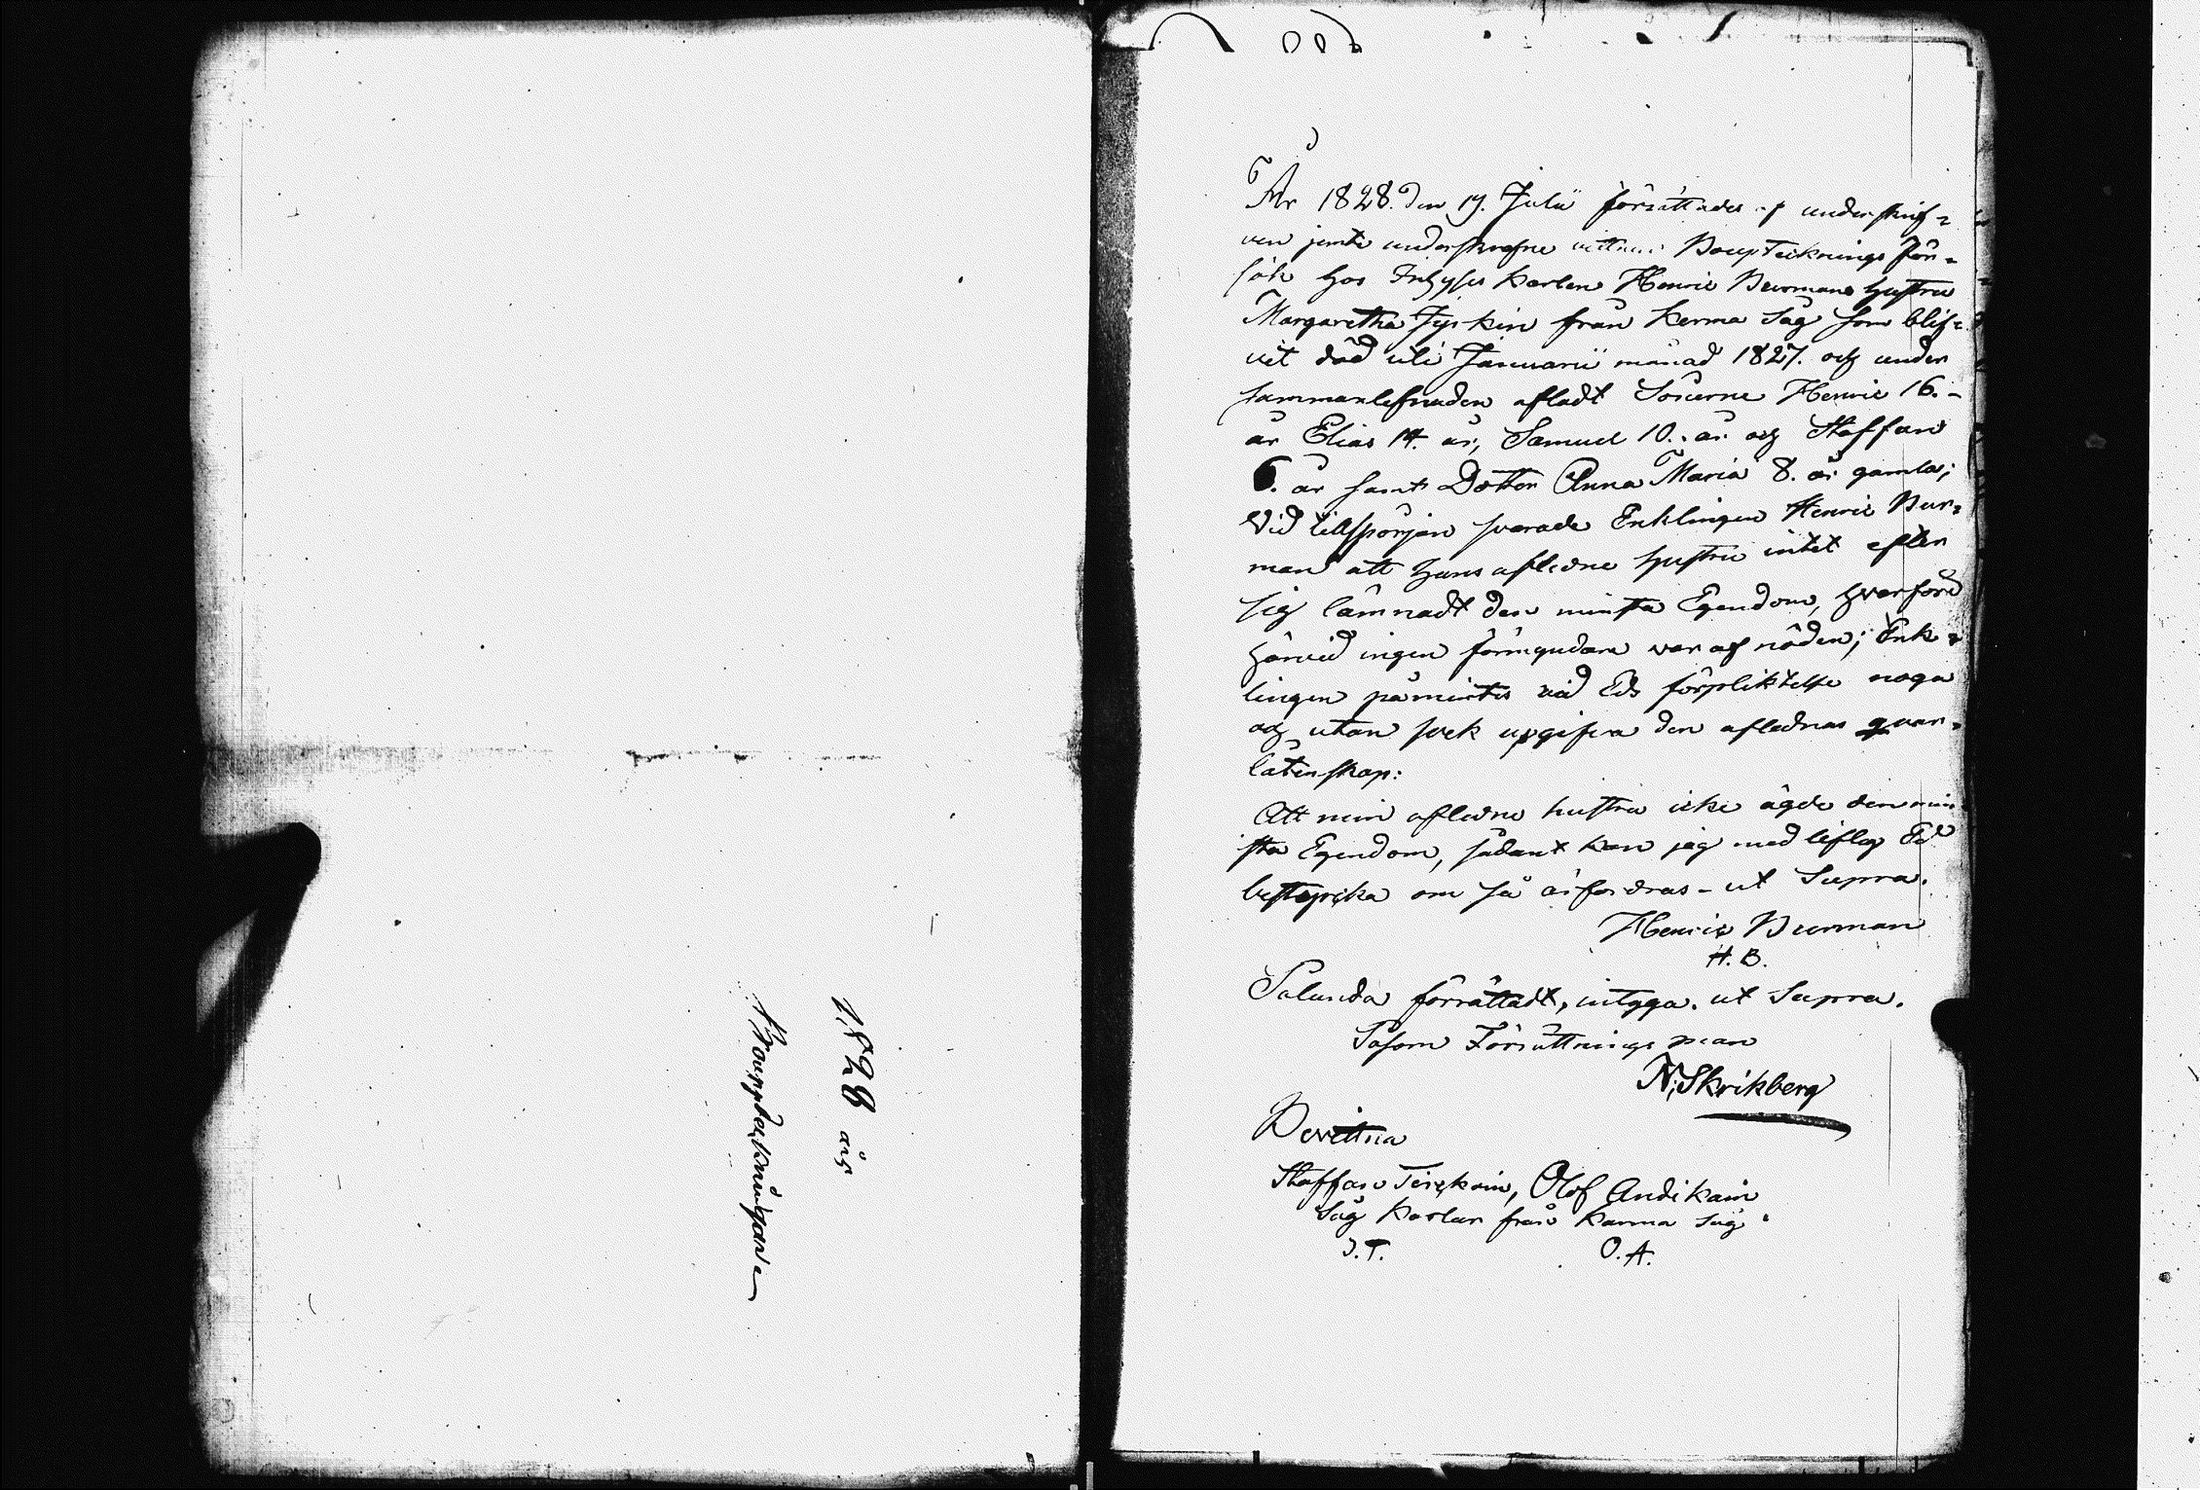 1828 års
Bouppteckningar
År 1828. den 19. Julii förrättades af underskrif=
ven jemte underskrefne vittnen Boupteiknings för=
sök hos Inhyses Karlen Henric Burmans hustru
Margaretha Tyskin från Kerma Såg som blif=
vit död uti Januarii månad 1827. och under
sammanlefnaden afladt Sönerne Henric 16.-
år Elias 14. år, Samuel 10. år och Staffan
6. år samt Dotter Anna Maria 8. år gamla;
Vid tillspörjan svarade Enklingen Henric Bur=
man att hans aflidne hustru intet efter
sig lämnadt den minsta Egendom, hvarföre
härvid ingen förmyndare var af nöden; Enk=
lingen påmintes vid Eds förpliktelse noga
och utan svek upgifva den aflednas qvar=
låtenskap:
Att min afledne hustru icke ägde den min
sta Egendom, sådant kan jag med liflig Ed
bestyrka om så ärfordras - ut Supra.
Henric Burman
H. B.
Salunda förrättadt, intyga. ut Supra.
Såsom Förrättnings man
N. Skrikberg
Bevittna
Staffan Teiskain, Olof Andikain
Såg Karlar från Karma Såg.
S. T. O. A.